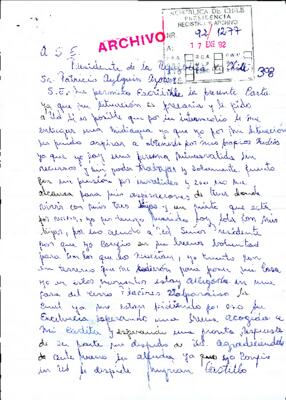 ARCHIVO
REPUBLICA DE CHILE
PRESIDENCIA
REGISTRO Y ARCHIVO
NR. 92/1277
A: 17 DIC 92
398
A S.E.
Presidente de la Republica de Chile
Sr. Patricio Aylwin Azocar
S.E. me permito Escribirle la presente Carta
ya que mi situación es precaria y le pido
a Ud si es posible que por su intermedio le me
entregue una mediagua ya que yo por mi situación
no puedo aspirar a obtenerla por mis propios medios
ya que yo soy una persona minusvalida sin
recursos y sin poder trabajar y solamente
con una pensión por invalidez y eso no me
alcanza para mis
vivir con mis tres hijos y un nieto que esta
por nacer, yo no tengo marido soy sola con mis
hijos, por eso acudo a Ud Señor Presidente
por que yo Confio en su buena voluntad
para con los que los necesitan, yo cuento con
un terreno que me dieron para poner mi Casa
yo en estos momentos estoy allegada en una
casa del cerro Placeres Valparaiso la
cual ya me estan pidiendo por eso su
Excelencia esperando una buena acogida a
mi Cartita y esperando una pronta respuesta
de su parte me despido de Ud. Agradeciendo
de ante mano su ayuda ya que yo Confio
en Ud se despide Miryam Castillo